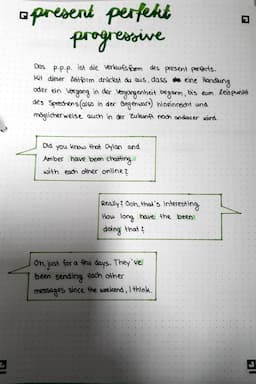 present perfekt
progressive
Das p.p.p. ist die Verlaufsform des present perfects.
Mit dieser Zeitform drückst du aus, dass eine Handlung
oder ein Vorgang in der Vergangenheit begann, bis zum Zeitpunkt
des Sprechens (also in der Gegenwart) hineinreicht und
möglicherweise auch in der Zukunft noch andauern wird.
Did you know that Dylan and
Amber have been chatting
with each other online?
Really? Ooh, that's interesting.
How long have the been
doing that?
Oh, just for a few days. They've
been sending each other
messages since the weekend, I think.